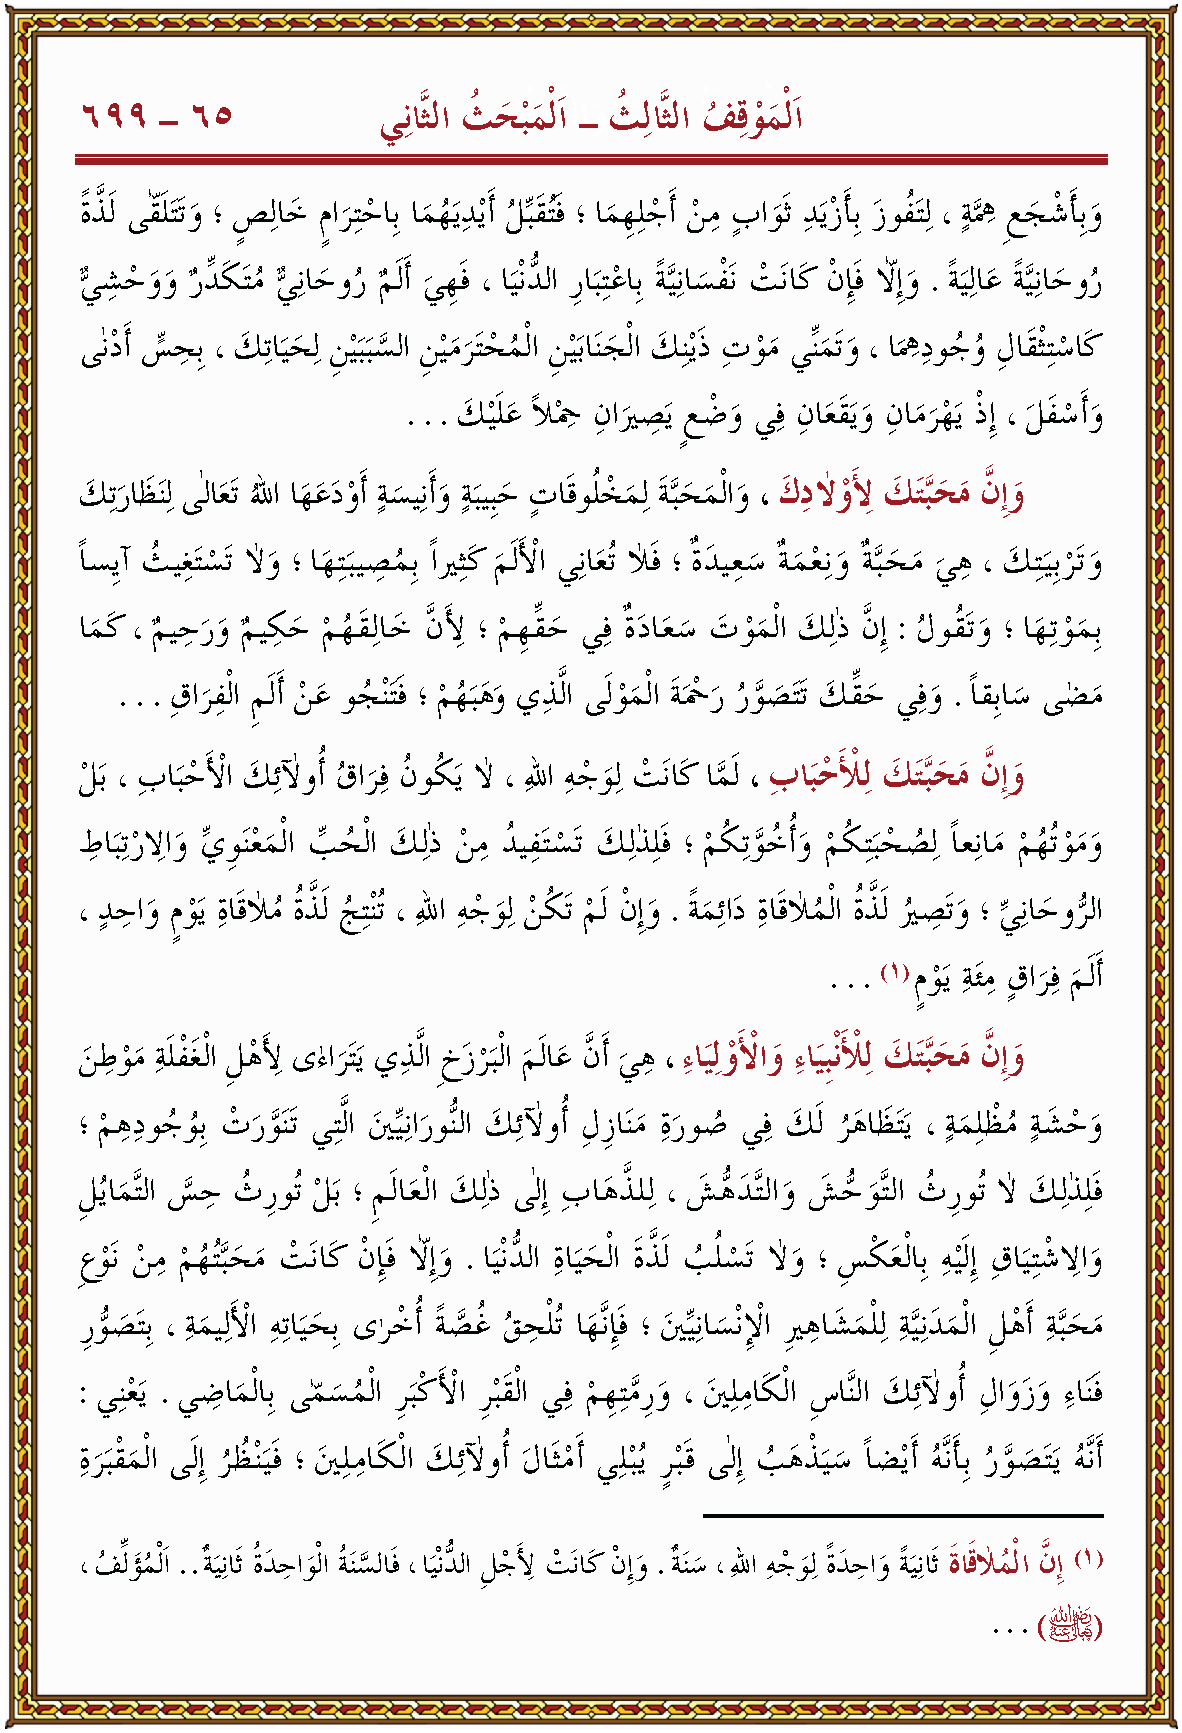 اَلْمَوْقِفُ الثَّالِثُ ـ اَلْمَبْحَثُ الثَّانِي ٦٥ ـ ٦٩٩
وَبِأَشْجَعِ هِمَّةٍ ، لِتَفُوزَ بِأَزْيَدِ ثَوَابٍ مِنْ أَجْلِهِمَا ؛ فَتُقَبِّلُ أَيْدِيَهُمَا بِاحْتِرَامٍ خَالِصٍ ؛ وَتَتَلَقّٰى لَذَّةً
رُوحَانِيَّةً عَالِيَةً . وَإِلاّٰ فَإِنْ كَانَتْ نَفْسَانِيَّةً بِاعْتِبَارِ الدُّنْيَا ، فَهِيَ أَلَمٌ رُوحَانِيٌّ مُتَكَدِّرٌ وَوَحْشِيٌّ
كَاسْتِثْقَالِ وُجُودِهِمَا ، وَتَمَنِّي مَوْتِ ذَيْنِكَ الْجَنَابَيْنِ الْمُحْتَرَمَيْنِ السَّبَبَيْنِ لِحَيَاتِكَ ، بِحِسٍّ أَدْنٰى
وَأَسْفَلَ ، إِذْ يَهْرَمَانِ وَيَقَعَانِ فِي وَضْعٍ يَصِيرَانِ حِمْلاً عَلَيْكَ . . .
وَإِنَّ مَحَبَّتَكَ لِأَوْلاٰدِكَ ، وَالْمَحَبَّةَ لِمَخْلُوقَاتٍ حَبِيبَةٍ وَأَنِيسَةٍ أَوْدَعَهَا اللهُ تَعَالٰى لِنَظَارَتِكَ
وَتَرْبِيَتِكَ ، هِيَ مَحَبَّةٌ وَنِعْمَةٌ سَعِيدَةٌ ؛ فَلاٰ تُعَانِي الْأَلَمَ كَثِيراً بِمُصِيبَتِهَا ؛ وَلاٰ تَسْتَغِيثُ آيِساً
بِمَوْتِهَا ؛ وَتَقُولُ : إِنَّ ذٰلِكَ الْمَوْتَ سَعَادَةٌ فِي حَقِّهِمْ ؛ لِأَنَّ خَالِقَهُمْ حَكِيمٌ وَرَحِيمٌ ، كَمَا
مَضٰى سَابِقاً . وَفِي حَقِّكَ تَتَصَوَّرُ رَحْمَةَ الْمَوْلَى الَّذِي وَهَبَهُمْ ؛ فَتَنْجُو عَنْ أَلَمِ الْفِرَاقِ . . .
وَإِنَّ مَحَبَّتَكَ لِلْأَحْبَابِ ، لَمَّا كَانَتْ لِوَجْهِ اللهِ ، لاٰ يَكُونُ فِرَاقُ أُولٰۤئِكَ الْأَحْبَابِ ، بَلْ
وَمَوْتُهُمْ مَانِعاً لِصُحْبَتِكُمْ وَأُخُوَّتِكُمْ ؛ فَلِذٰلِكَ تَسْتَفِيدُ مِنْ ذٰلِكَ الْحُبِّ الْمَعْنَوِيِّ وَالِارْتِبَاطِ
الرُّوحَانِيِّ ؛ وَتَصِيرُ لَذَّةُ الْمُلاٰقَاةِ دَائِمَةً . وَإِنْ لَمْ تَكُنْ لِوَجْهِ اللهِ ، تُنْتِجُ لَذَّةُ مُلاٰقَاةِ يَوْمٍ وَاحِدٍ ،
أَلَمَ فِرَاقٍ مِئَةِ يَوْمٍ (١) . . .
وَإِنَّ مَحَبَّتَكَ لِلْأَنْبِيَاءِ وَالْأَوْلِيَاءِ ، هِيَ أَنَّ عَالَمَ الْبَرْزَخِ الَّذِي يَتَرَاءٰى لِأَهْلِ الْغَفْلَةِ مَوْطِنَ
وَحْشَةٍ مُظْلِمَةٍ ، يَتَظَاهَرُ لَكَ فِي صُورَةِ مَنَازِلِ أُولٰۤئِكَ النُّورَانِيِّينَ الَّتِي تَنَوَّرَتْ بِوُجُودِهِمْ ؛
فَلِذٰلِكَ لاٰ تُورِثُ التَّوَحُّشَ وَالتَّدَهُّشَ ، لِلذَّهَابِ إِلٰى ذٰلِكَ الْعَالَمِ ؛ بَلْ تُورِثُ حِسَّ التَّمَايُلِ
وَالِاشْتِيَاقِ إِلَيْهِ بِالْعَكْسِ ؛ وَلاٰ تَسْلُبُ لَذَّةَ الْحَيَاةِ الدُّنْيَا . وَإِلاّٰ فَإِنْ كَانَتْ مَحَبَّتُهُمْ مِنْ نَوْعِ
مَحَبَّةِ أَهْلِ الْمَدَنِيَّةِ لِلْمَشَاهِيرِ الْإِنْسَانِيِّينَ ؛ فَإِنَّهَا تُلْحِقُ غُصَّةً أُخْرٰى بِحَيَاتِهِ الْأَلِيمَةِ ، بِتَصَوُّرِ
فَنَاءِ وَزَوَالِ أُولٰۤئِكَ النَّاسِ الْكَامِلِينَ ، وَرِمَّتِهِمْ فِي الْقَبْرِ الْأَكْبَرِ الْمُسَمّٰى بِالْمَاضِي . يَعْنِي :
أَنَّهُ يَتَصَوَّرُ بِأَنَّهُ أَيْضاً سَيَذْهَبُ إِلٰى قَبْرٍ يُبْلِي أَمْثَالَ أُولٰۤئِكَ الْكَامِلِينَ ؛ فَيَنْظُرُ إِلَى الْمَقْبَرَةِ
(١) إِنَّ الْمُلاٰقَاةَ ثَانِيَةً وَاحِدَةً لِوَجْهِ اللهِ ، سَنَةٌ . وَإِنْ كَانَتْ لِأَجْلِ الدُّنْيَا ، فَالسَّنَةُ الْوَاحِدَةُ ثَانِيَةٌ . . اَلْمُؤَلِّفُ ،
(رَضِيَ اللهُ تَعَالٰى عَنْهُ) . . .